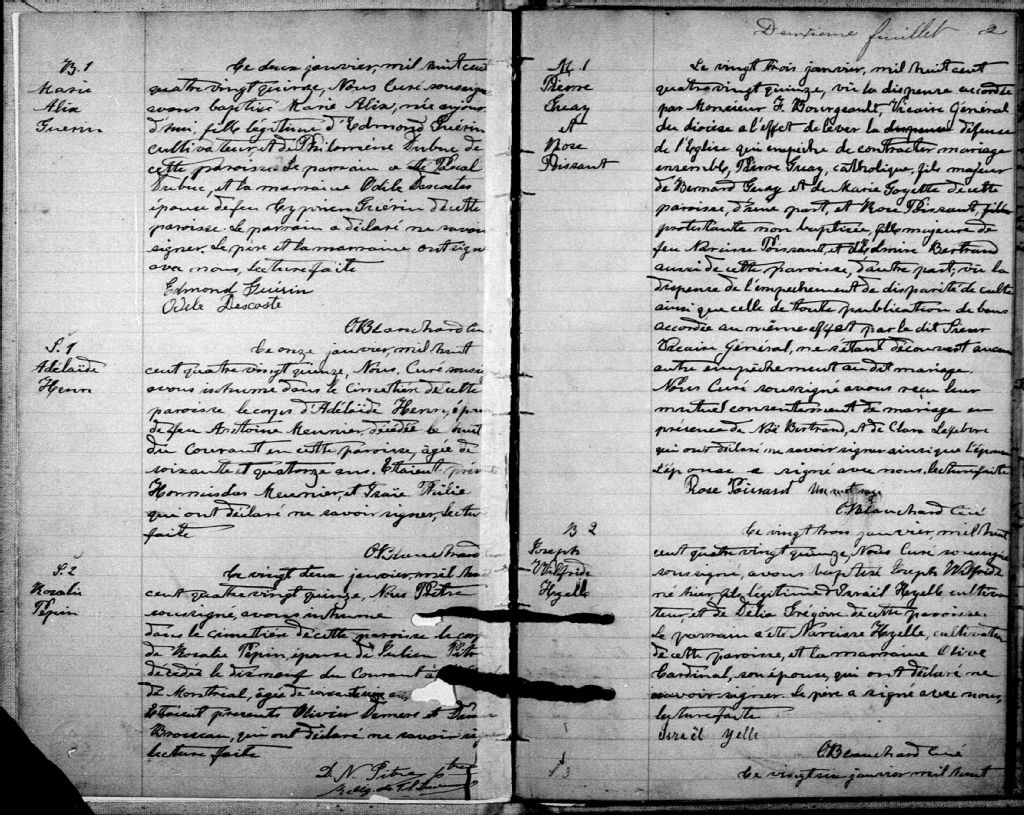 B. 1
Marie
Alia
Guerin
Ce deux janvier, mil huit cent
quatre vingt quinze, Nous Curé soussigné
avons baptisé Marie Alia, née aujour
d'hui, fille légitime d'Edmond Guérin
cultivateur, et de Philomène Dubuc de
cette paroisse. Le parrain a été Pascal
Dubuc, et la marraine Odile Descostes
épouse de feu Cyprien Guérin de cette
paroisse. Le parrain a déclaré ne savoir
signer. Le père et la marraine ont signé
avec nous, Lecture faite
Edmond Guérin
Odile Descoste
O Blanchard Cu
S. 1
Adélaïde
Henri
Ce onze janvier, mil huit
cent quatre vingt quinze, Nous, Curé soussi
avons inhumé dans le Cimetière de cette
paroisse le corps d'Adélaïde Henri, épou
de feu Antoine Meunier, décédée le huit
du Courant en cette paroisse, âgée de
soixante et quatorze ans. Etaient présents
Hormisdas Meunier, et
qui ont déclaré ne savoir signer, Lecture
faite
O Blanchard
S. 2
Rosalie
Pépin
Ce vingt deux janvier, mil huit
cent quatre vingt quinze, Nous Prêtre
soussigné, avons inhumé
dans le cimetière de cette paroisse le cor
de Rosalie Pépin, épouse de Julien Pitre
décédée le dixneuf du Courant à
de Montréal, âgée de soixante
Etaient présents Olivier Demers et
Brosseau, qui ont déclaré ne savoir signer
Lecture faite
D. N. Pitre ptre
Deuxieme feuillet 2
M. 1
Pierre
Guay
et
Rose
Poissant
Le vingt trois janvier, mil huit cent
quatre vingt quinze, vu la dispense accordée
par Monsieur F. Bourgeault, Vicaire Général
du diocèse a l'effet de lever la dispense défense
de l'Eglise qui empêche de contracter mariage
ensemble, Pierre Guay, catholique, fils majeur
de Bernard Guay et de Marie Goyette de cette
paroisse, d'une part, et Rose Poissant, fille
protestante non baptisée, fille majeure de
feu Narcisse Poissant, et d'Edmire Bertrand
aussi de cette paroisse, d'autre part; vu la
dispense de l'empêchement de disparité de culte
ainsi que celle de toute publication de bans
accordée au même effet par le dit Sieur
Vicaire Général, ne s'étant découvert aucun
autre empêchement au dit mariage.
Nous Curé soussigné avons reçu leur
mutuel consentement de mariage en
présence de Noé Bertrand, et de Clara Lefebvre
qui ont déclaré ne savoir signer ainsi que l'époux
L'épouse a signé avec nous, lecture faite
Rose Poissant Un mot rayé
O Blanchard Curé
B 2
Joseph
Wilfride
Hyelle
Ce vingt trois janvier, mil huit
cent quatre vingt quinze, Nous Curé soussigné
soussigné, avons baptisé Joseph Wilfride
né hier, fils légitime d'Israël Hyelle cultiva
teur, et de Délia Grégoire de cette paroisse.
Le parrain a été Narcisse Hyelle, cultivateur
de cette paroisse, et la marraine Olive
Cardinal, son épouse, qui ont déclaré ne
savoir signer. Le père a signé avec nous,
lecture faite
Israël Yelle
O Blanchard Curé
S 3
Ce vingt six janvier mil huit